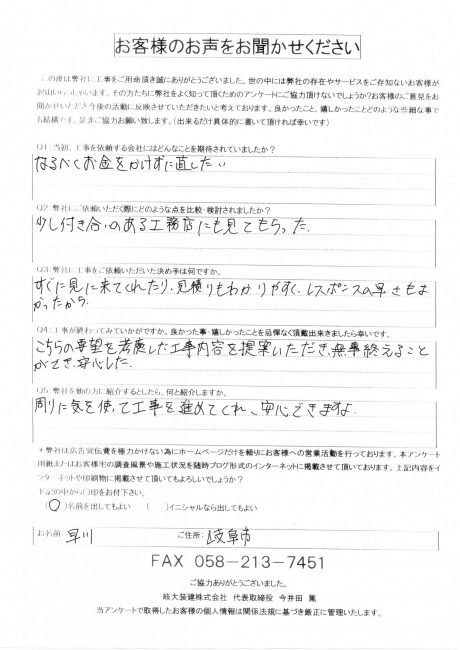 お客様のお声をお聞かせください
この度は弊社に工事をご用命頂き誠にありがとうございました。世の中には弊社の存在やサービスをご存知ないお客様が
沢山いらっしゃいます。その方たちに弊社をよく知って頂くためのアンケートにご協力頂けないでしょうか?お客様のご意見をお
聞かせいただき今後の活動に反映させていただきたいと考えております。良かったこと、嬉しかったことどのような些細な事で
も結構です。是非ご協力お願い致します。(出来るだけ具体的に書いて頂ければ幸いです)
Q1:当初、工事を依頼する会社にはどんなことを期待されていましたか?
なるべくお金をかけずに直したい
Q2:弊社にご依頼いただく際にどのような点を比較・検討されましたか?
少し付き合いのある工務店にも見てもらった.
Q3:弊社に工事をご依頼いただいた決め手は何ですか。
すぐに見に来てくれたり、見積りもわかりやすく、レスポンスの早さもよ
かったから.
Q4:工事が終わってみていかがですか。良かった事・嬉しかったことを忌憚なく頂戴出来ましたら幸いです。
こちらの要望を考慮した工事内容を提案いただき、無事終えること
ができ、安心した.
Q5:弊社を他の方に紹介するとしたら、何と紹介しますか。
周りに気を使って工事を進めてくれ、安心できますよ
*弊社は広告宣伝費を極力かけない為にホームページだけを頼りにお客様への営業活動を行っております。本アンケート
用紙またはお客様宅の調査風景や施工状況を随時ブログ形式のインターネットに掲載させて頂いております。上記内容をイ
ンターネットや印刷物に掲載させて頂いてもよろしいでしょうか?
下記の中から○印をお付下さい。
(○)名前を出してもよい ( )イニシャルなら出してもよい
お名前 早川 ご住所: 岐阜市
FAX 058-213-7451
ご協力ありがとうございました。
岐太装建株式会社 代表取締役 今井田 篤
当アンケートで取得したお客様の個人情報は関係法規に基づき厳正に管理いたします。